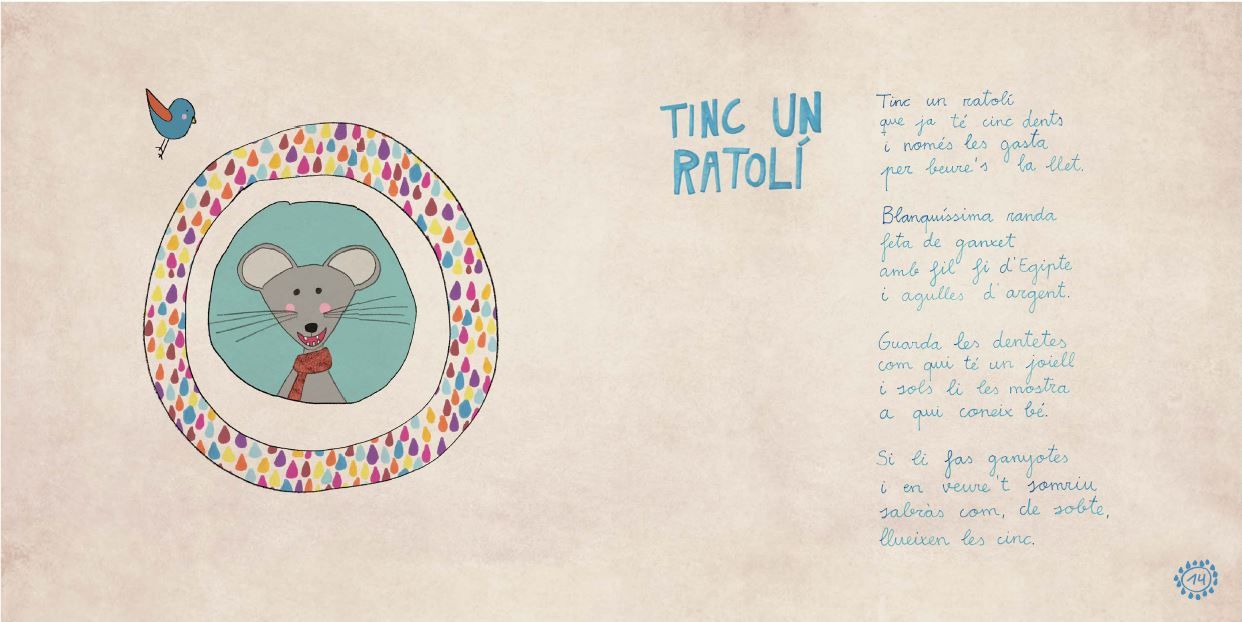 TINC UN
RATOLÍ
Tinc un ratolí
que ja té cinc dents
i només les gasta
per beure's la llet.
Blanquíssima randa
feta de ganxet
amb fil fi d'Egipte
i agulles d'argent.
Guarda les dentetes
com qui té un joiell
i sols li les mostra
a qui coneix bé.
Si li fas ganyotes
i en veure't somriu
sabràs com, de sobte,
llueixen les cinc.
14